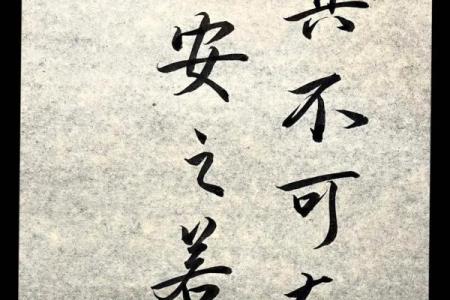 其不可
安之若